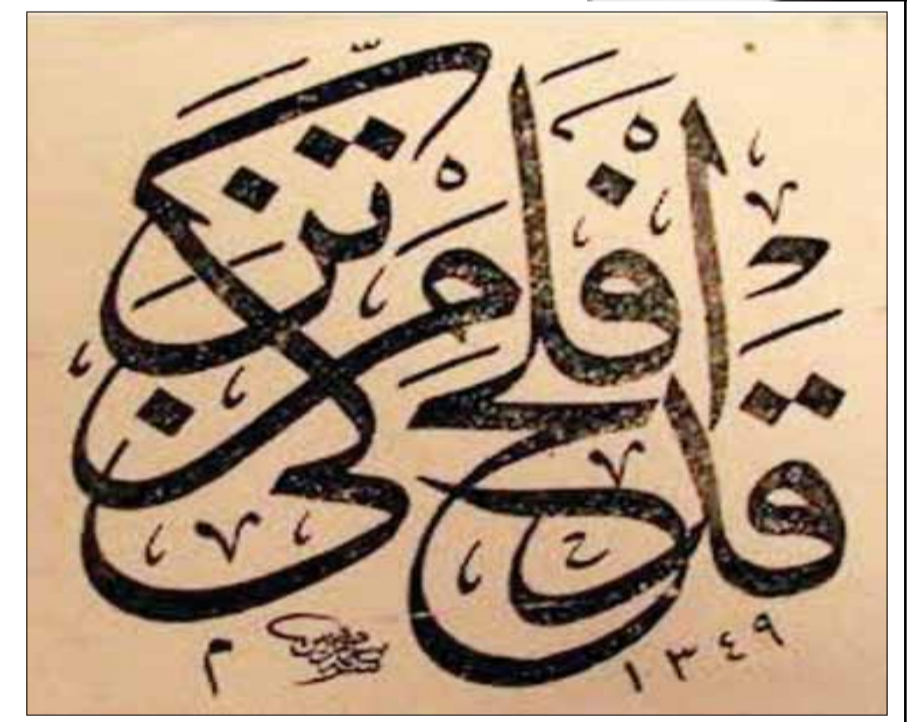 قد افلح من تزكى
١٣٤٩
م